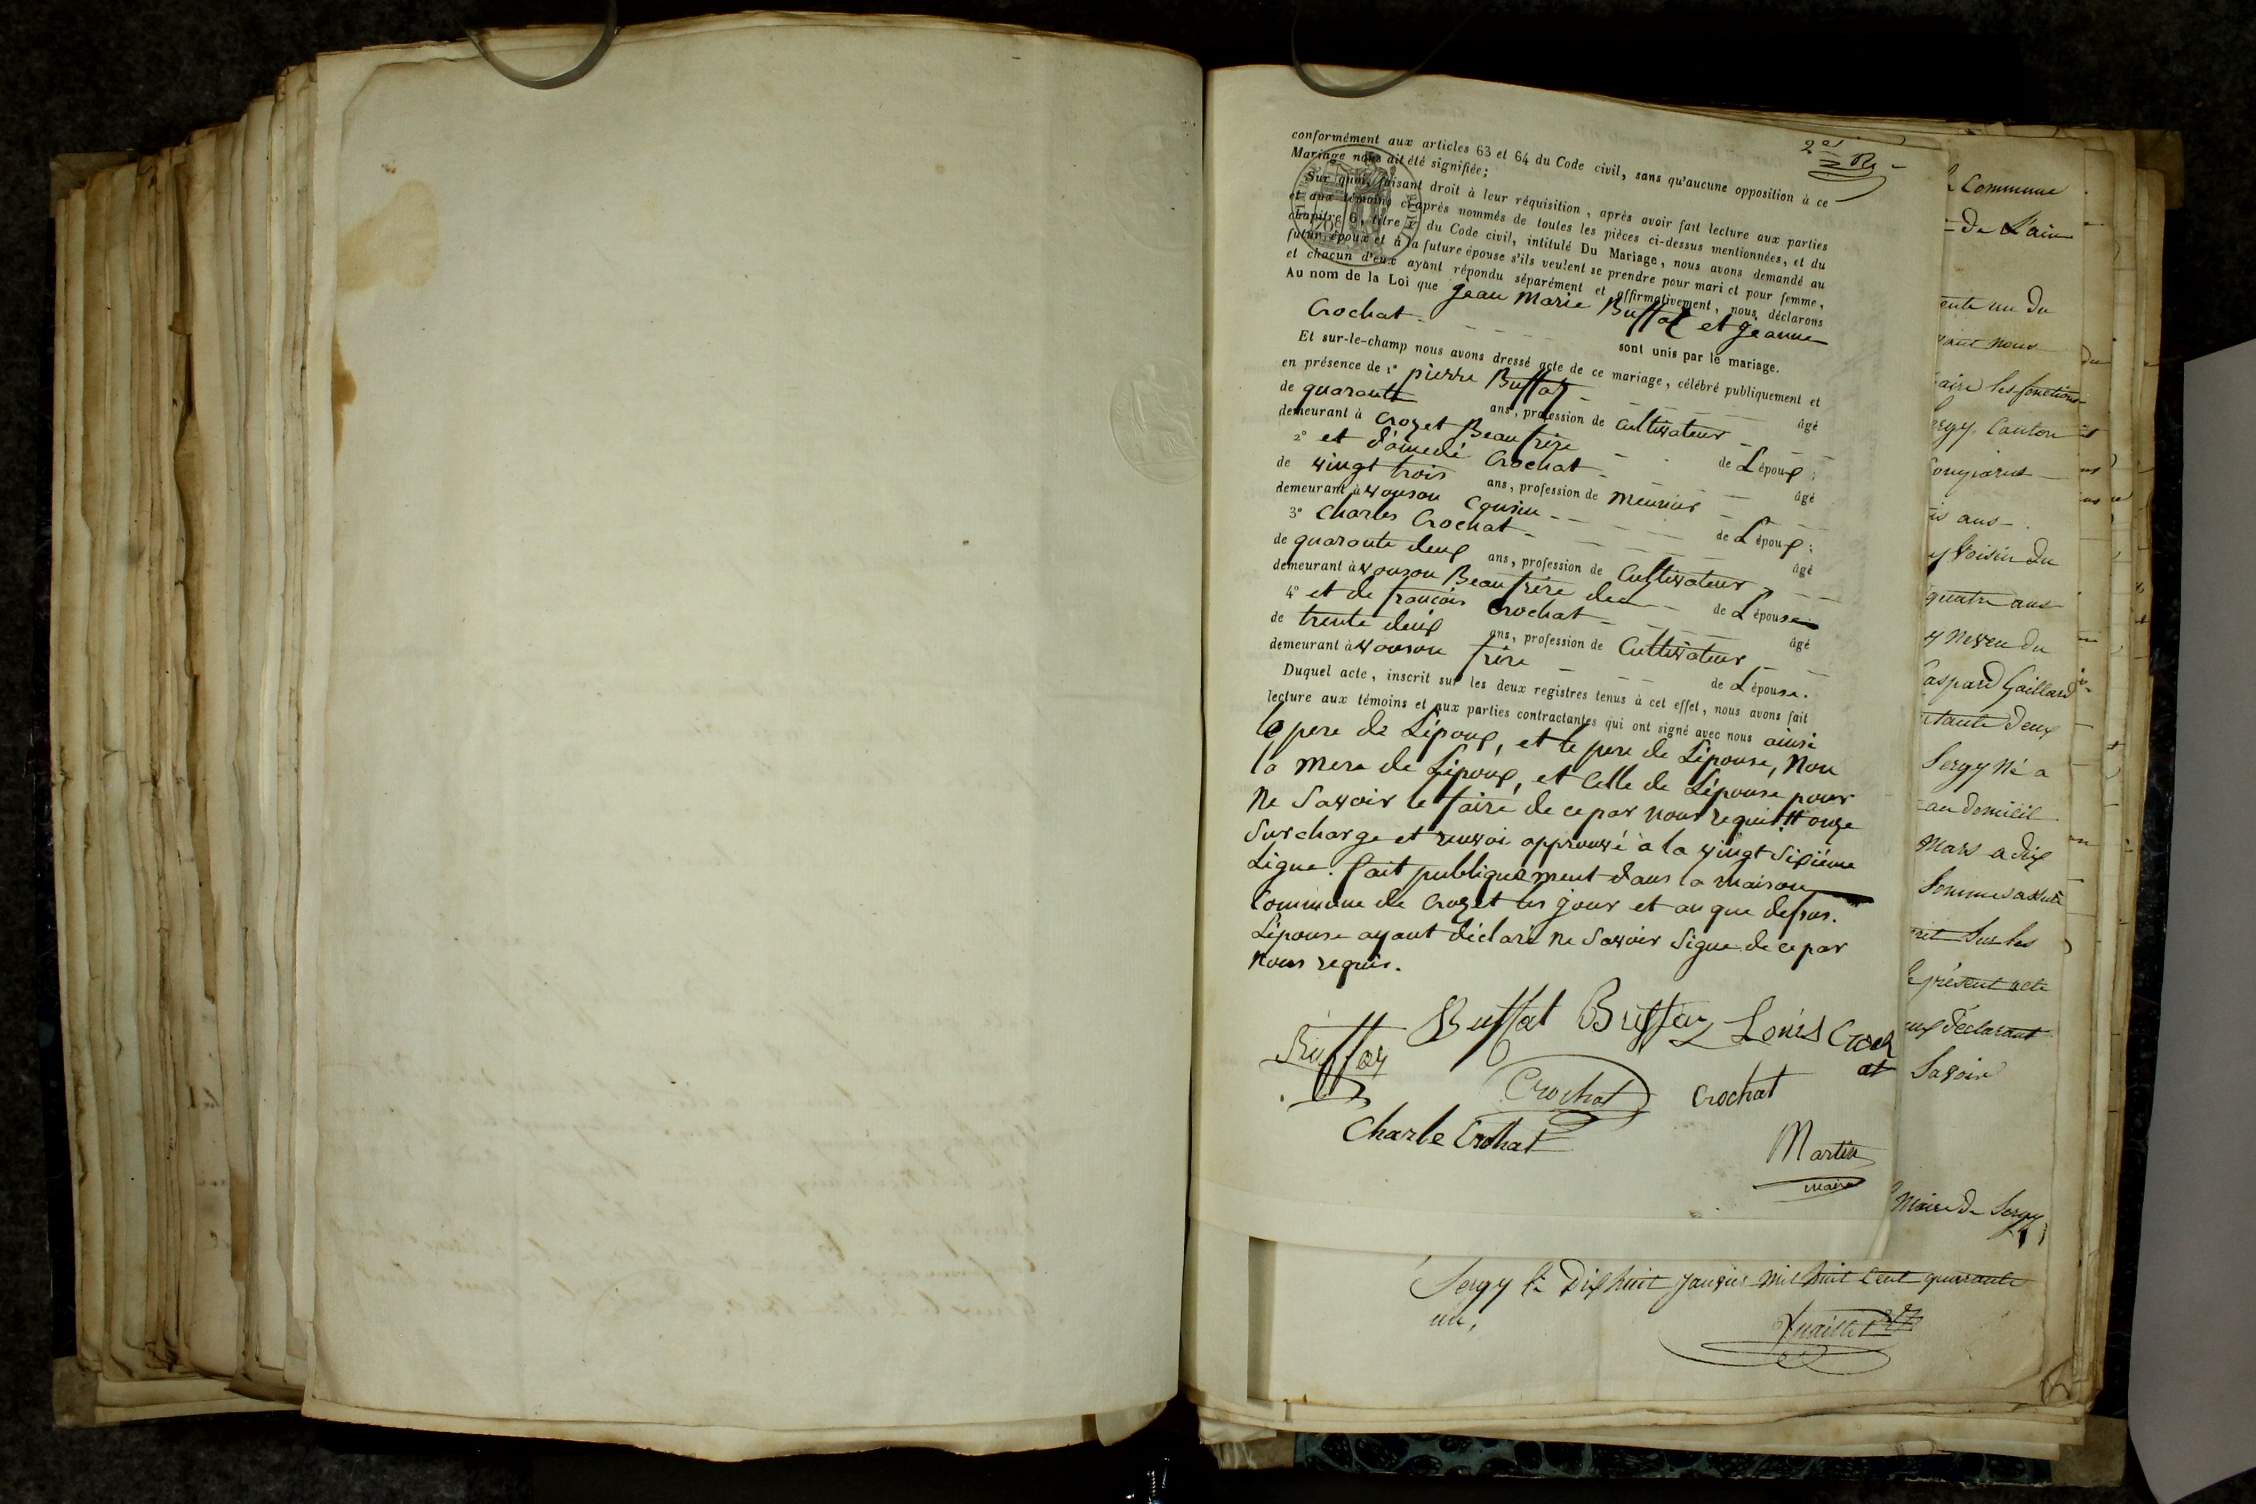 conformément aux articles 63 et 64 du Code civil, sans qu'aucune opposition à ce
Mariage nous ait été signifiée;
Sur quoi, faisant droit à leur réquisition, après avoir fait lecture aux parties
et aux témoins ci-après nommés de toutes les pièces ci-dessus mentionnées, et du
chapitre 6, titre du Code civil, intitulé Du Mariage, nous avons demandé au
futur époux et à la future épouse s'ils veulent se prendre pour mari et pour femme,
et chacun d'eux ayant répondu séparément et affirmativement, nous déclarons
Au nom de la Loi que jean Marie Buffaz et jeanne
Crochat
sont unis par le mariage.
Et sur-le-champ nous avons dressé acte de ce mariage, célébré publiquement et
en présence de 1° pierre Buffaz
de quarante ans, profession de Cultivateur âgé
demeurant à Crozet Beau frère de L'époux;
2° et d'amedé Crochat
de vingt trois ans, profession de meunier âgé
demeurant à vouson Cousin de L'époux;
3° Charles Crochat
de quarante deux ans, profession de Cultivateur âgé
demeurant à vouson Beau frère de L'épouse
4° et de françois Crochat
de trente deux ans, profession de Cultivateur âgé
demeurant à vouson frère de L'épouse.
Duquel acte, inscrit sur les deux registres tenus à cet effet, nous avons fait
lecture aux témoins et aux parties contractantes qui ont signé avec nous ainsi
le pere de L'époux, et le pere de L'épouse, Non
la mere de L'époux, et Celle de L'épouse pour
Ne Savoir le faire de ce par nous requis # onze
Surcharge et renvoi approuvé à la vingt Sixiéme
Ligne. fait publiquement dans la maison
Commune de Crozet les jour et an que dessus.
L'épouse ayant déclaré Ne Savoir Signe de ce par
Nous requis.
Buffat Buffaz Louis Croch
at
Buffaz
Crochat Crochat
Charle Crohat
Martin
maire
Commune
de L'ain
ente un du
vant nous
aire les fonctions
ergy. Canton
is ans
y Voisin du
quatre ans
y Neveu du
aspard Gaillard
tante deux
Sergy Né a
au domicil
Mars a dix
rit Sur les
le présent acte
eux déclarant
Savoir
Maire de Sergy
Sergy le Dix huit janvier mil huit Cent quarante
un,